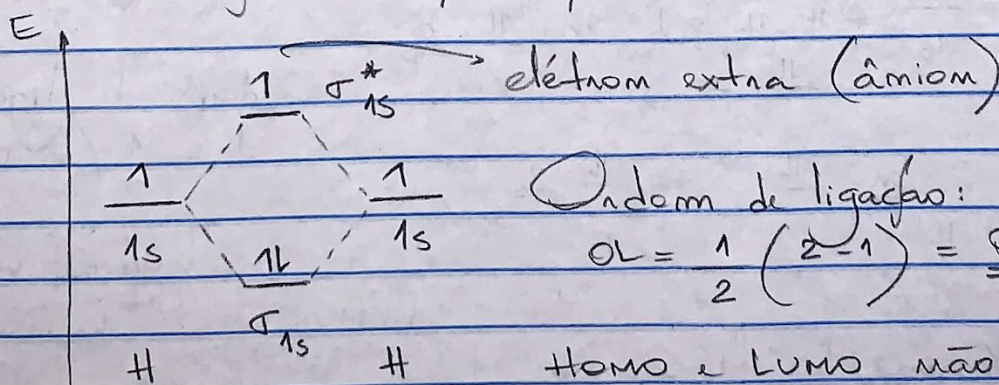 E
1 σ*1s elétrom extra (âmiom)
1 1 Ordem de ligação:
1s 1L 1s OL = 1/2 (2-1) =
σ1s
H H HOMO e LUMO mão